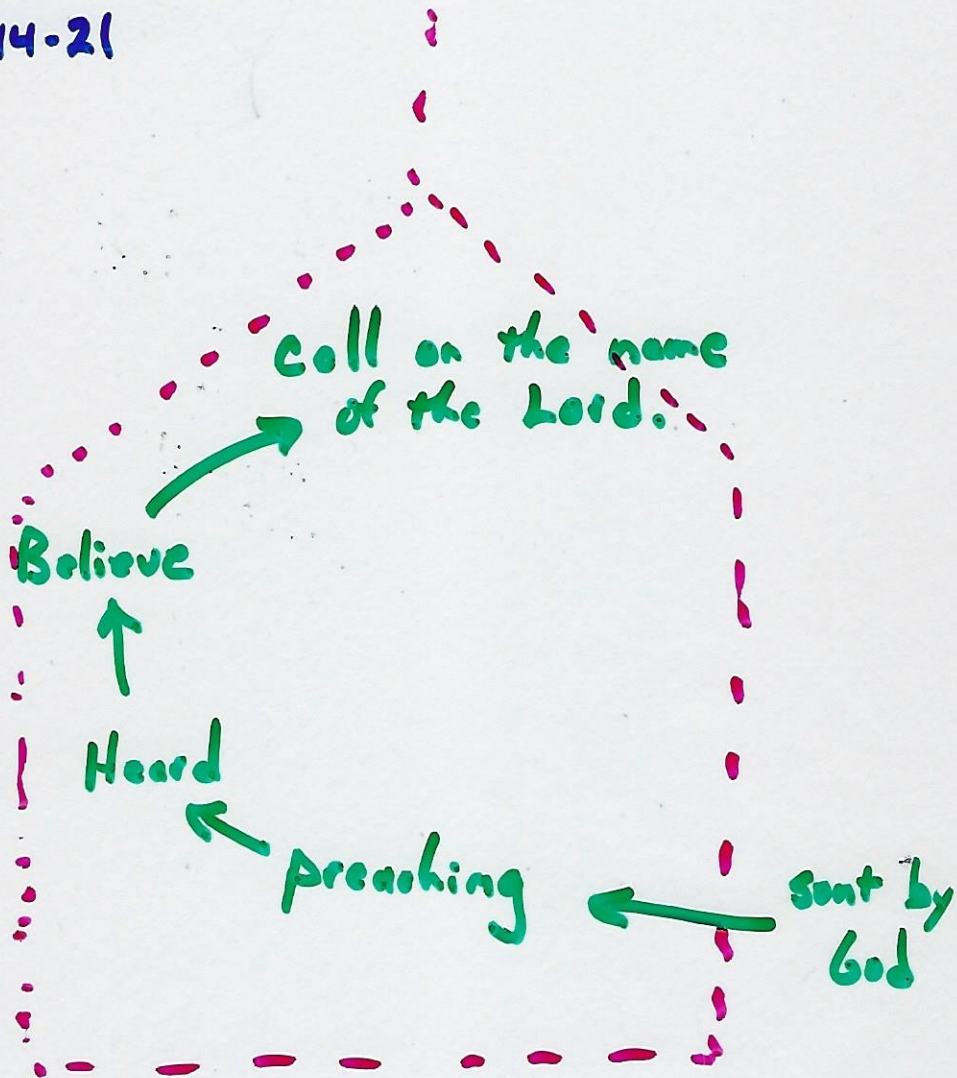 14-21
call on the name
of the Lord.
Believe
Heard
preaching
sent by
God